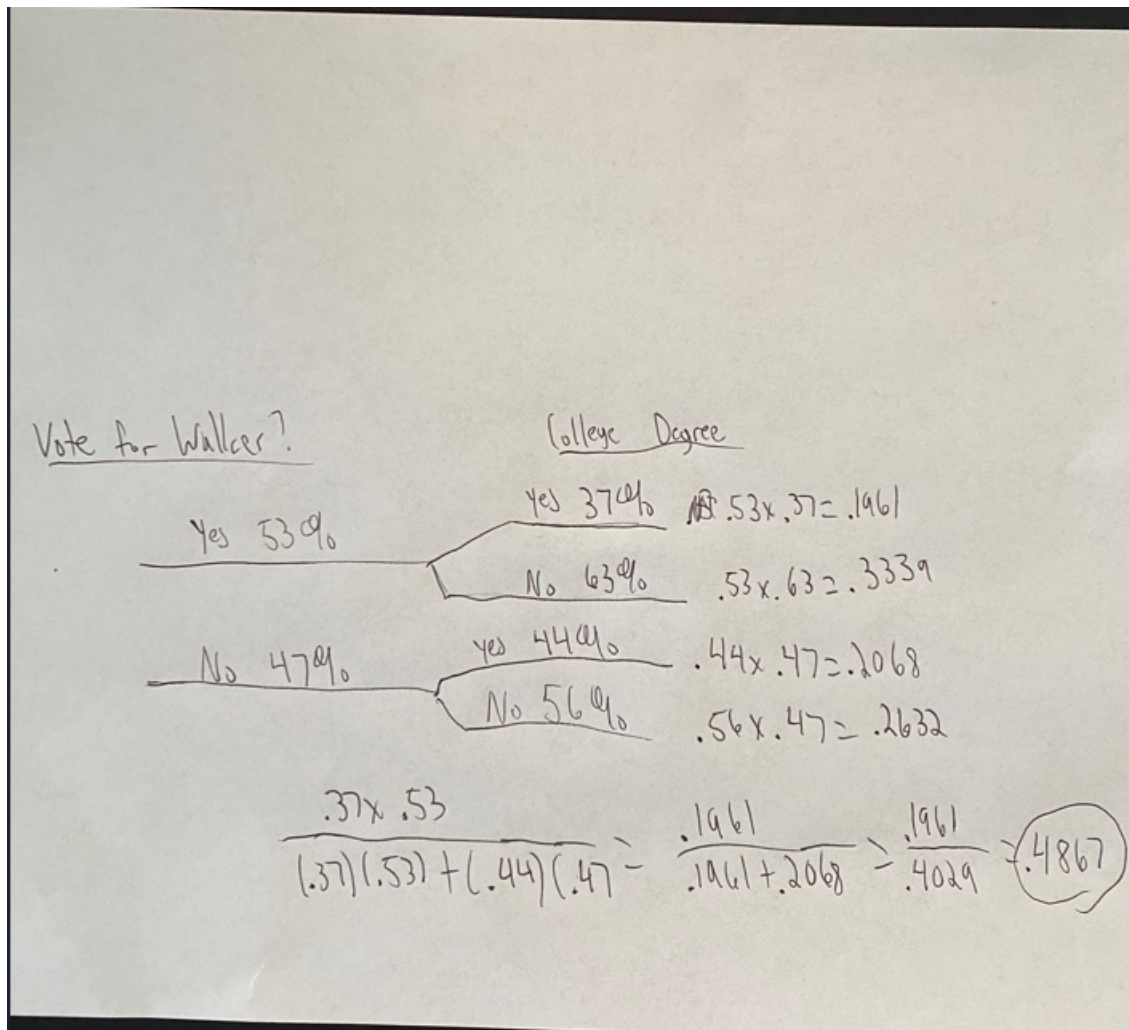 Vote for Walker? College Degree
Yes 53% Yes 37% .53x.37=.1961
No 63% .53x.63=.3339
No 47% Yes 44% .44x.47=.2068
No 56% .56x.47=.2632
.37x .53 .1961 .1961
(.37)(.53)+(.44)(.47 = .1961+.2068 = .4029 = .4867